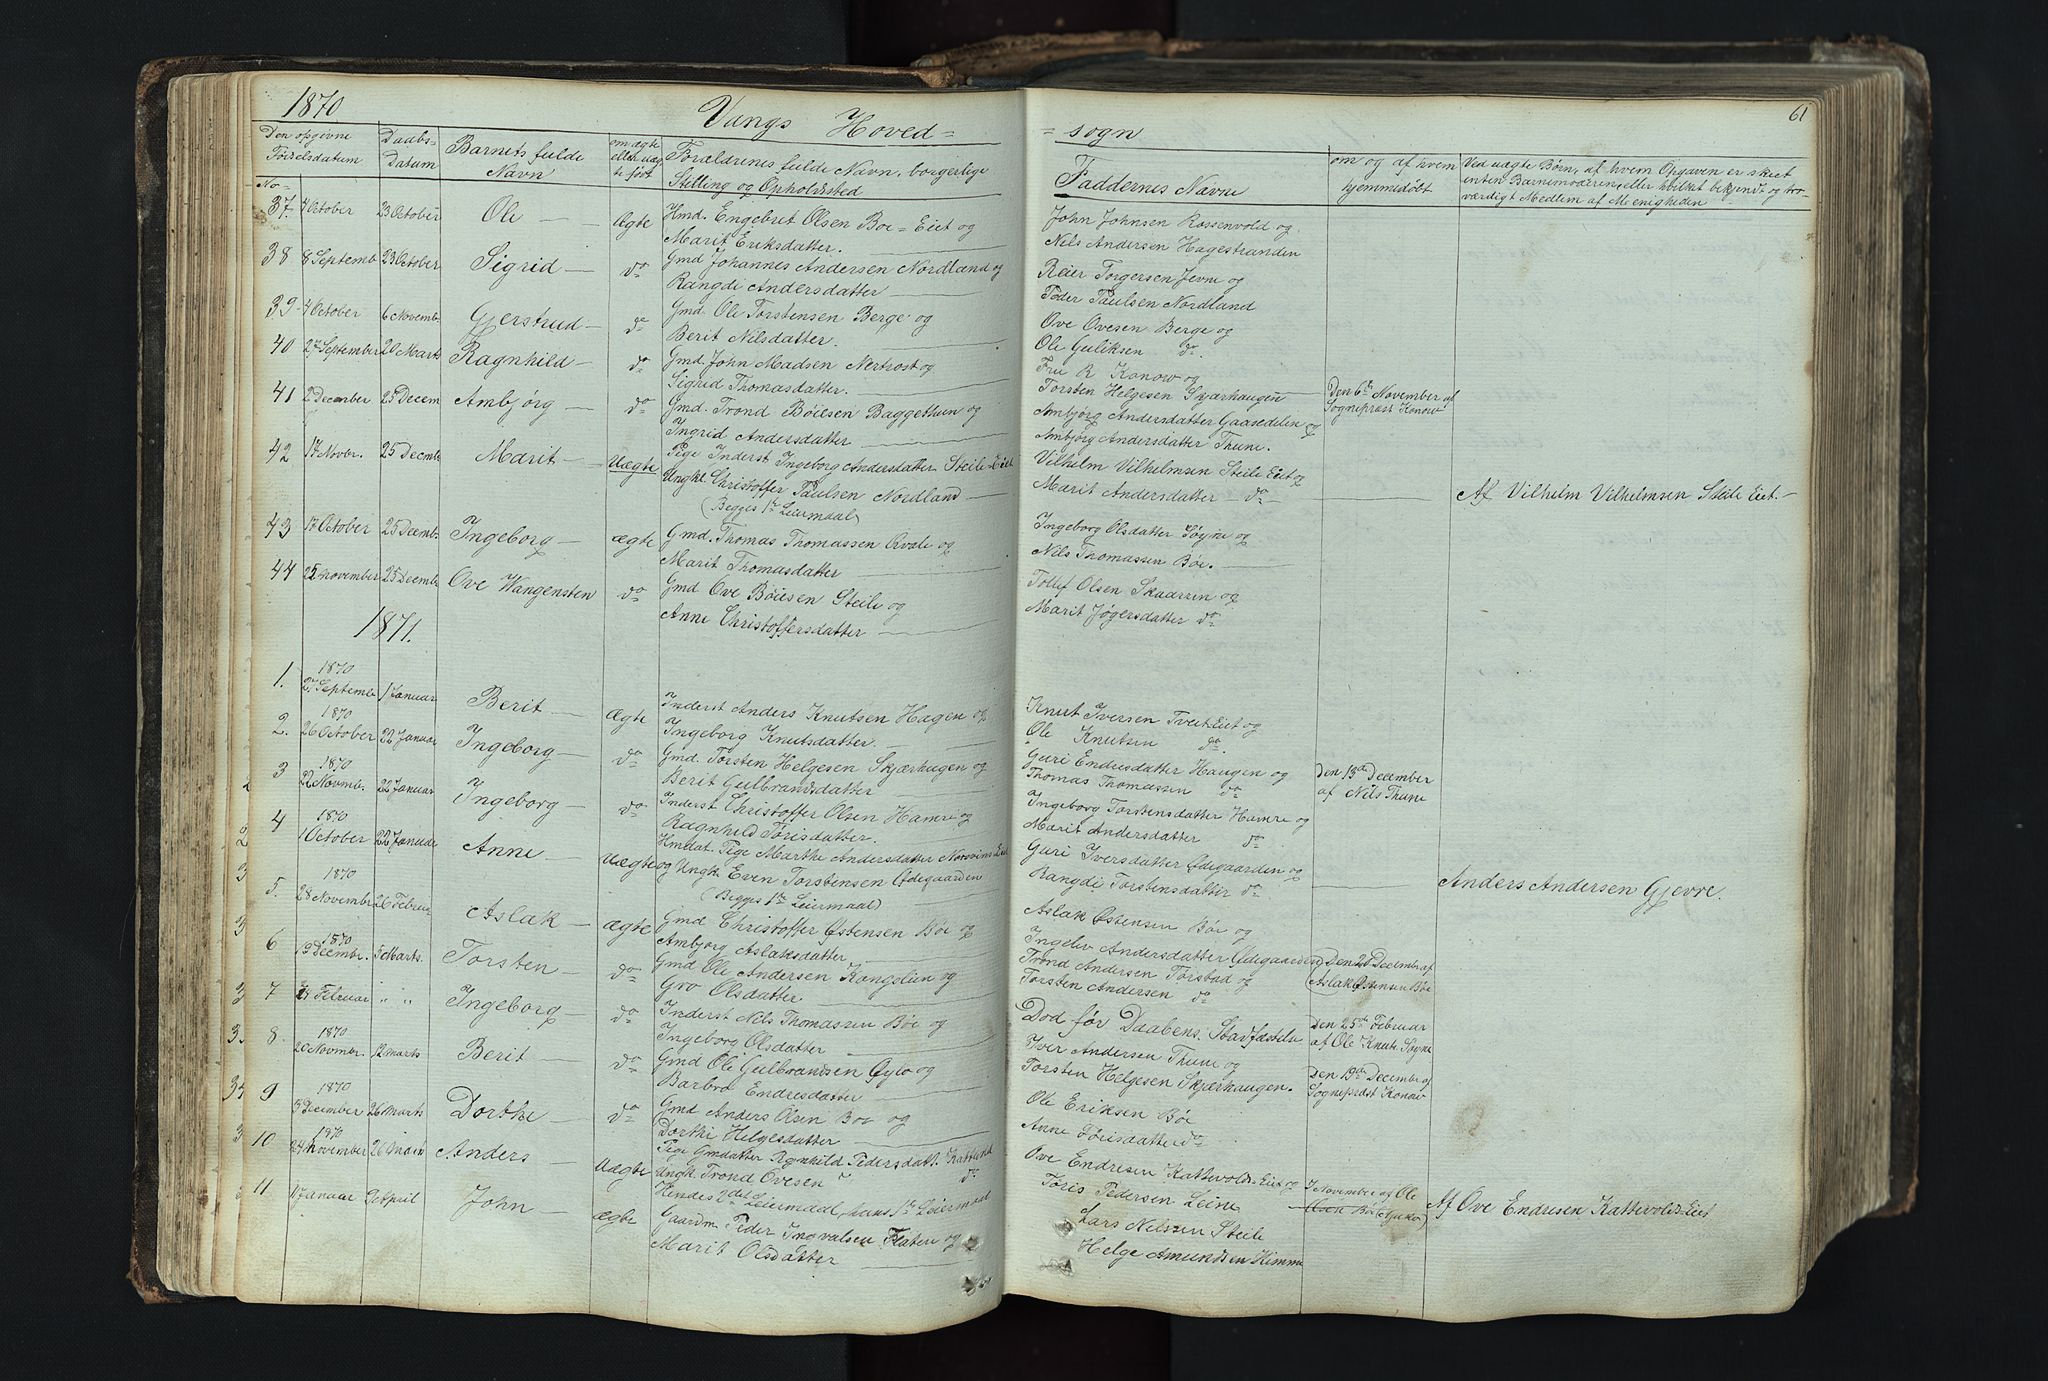 1870
Vangs Hoved=
Den opgivne Fødselsdatum
Daabs-Datum
Barnets fulde Navn
om ægte eller uægte født
Forældrenes fulde Navn, borgerlige Stilling og Opholdssted
No
37. 4 October 23 October Ole — Ægte Hmd. Engebret Olsen Boe=Eiet og
Marit Eriksdatter.
38 8 Septemb 23 October Sigrid — do Gmd Johannes Andersen Nordland og
Rangdi Andersdatter
39 4 October 6 Novemb. Gjertrud — do Gmd. Ole Torstensen Berge og
Berit Nilsdatter.
40 27 September 20 Marts Ragnhild — do Gmd. John Madsen Nertrost og
Sigrid Thomasdatter.
41 2 December 25 Decem Ambjørg — do Gmd. Trond Bøiesen Baggethun og
Ingrid Andersdatter
42 17 Novbr. 25 Decmb Marit — Uægte Pige Inderst Ingeborg Andersdatter Steile-Eiet
Ungkl Christoffer Paulsen Nordland —
(Begges 1te Leiermaal)
43 17 October 25 Decemb. Ingeborg — ægte Gmd. Thomas Thomassen Qvale og
Marit Thomasdatter
44 22 november 25 Decembe Ove Wangensten do Gmd Ove Bøiesen Steile og
Anne Christoffersdatter
1871.
1. 1870 27 Septemb 1 Januar Berit — Ægte Inderst Anders Knutsen Hagen og
Ingeborg Knutsdatter.
2. 1870 26 October 22 Januar Ingeborg — do Gmd. Torsten Helgesen Skjærhugen og
Berit Gulbrandsdatter
3 1870 22 Novemb. 22 Januar Ingeborg — do Inderst Christoffer Olsen Hamre og
Ragnhild Torisdatter.
4 1870 1 October 22 Januar Anne — Uægte Hmdat Pige Marthe Andersdatter Eiet
og Ungk Even Torstensen Ødegaarden
(Begges 1te Leiermaal)
5. 1870 28 November 26 Februar Aslak — ægte Gmd Christoffer Østensen Bøe og
Ambjørg Aslaksdatter
6 1870 13 Decembr. 5 Marts. Torsten — do Gmd Ole Andersen Kongslien og
Gro Olsdatter
7 Februar " " Ingeborg — do Inderst Nils Thomassen Bøe og
Ingeborg Olsdatter
8. 1870 20 Novembr. 12 marts Berit — do Gmd Ole Gulbrandsen Øylo og
Barbro Endresdatter
9 1870 3 December 26 Marts Dorthe — do Gmd Anders Olsen Boe og
Dorthi Helgesdatter
10 1870 24 November 26 Anders — Uægte Pige Gmdatter Rgnhild Pedersdatt.
Ungk. Trond Ovesen do.
Hendes 2det Leiermaal, hans 1te Leiermaal
11 Januar April John — ægte Gaardm. Peder Ingvalsen Flaten og
Marit Olsdatter
= sogn
61
Faddernes Navne
om og af hvem hjemmedøbt
Ved uægte Børn, af hvem Opgaven er skeet
enten Barnemoderen, eller hvilket bekjendt og tro-
værdigt Medlem af Menigheden
John Johnsen Rossenvold og
Nils Andersen Hagestranden
Reier Torgersen Jevne og
Peder Paulsen Nordland
Ove Ovesen Berge og
Ole Guliksen do.
Fru R Konow og
Torsten Helgesen Skjærhaugen — Den 6te November af
Sogneprest Konow
Ambjørg Andersdatter Gaasedelen og
Ambjørg Andersdatter Thune.
Vilhelm Vilhelmsen Steile Eiet og
Marit Andersdatter — do — Af Vilhelm Vilhelmsen Steile Eiet.
Ingeborg Olsdatter Søyne og
Nils Thomassen Bøe.
Tollef Olsen Skaarren og
Marit Jøgersdatter do
Knut Iversen Tveit Eiet og
Ole Knutsen do.
Guri Endresdatter Haugen og Den 13de December
Thomas Thomassen do af Nils Thune
Ingeborg Torstensdatter Hamre og
Marit Andersdatter do
Guri Iversdatter Ødegaarden og
Rangdi Torstensdatter do — Anders Andersen Gjevre.
Aslak Østensen Bøe og
Ingelev Andersdatter Ødegaarden Den 20 Decembr af
Trond Andersen Torstad og Aslak Østensen Bøe
Torsten Andersen do
Død før Daabens Stadfæstelse Den 25de Februar
af Ole Knuts. Søyne
Iver Andersen Thune og
Torsten Helgesen Skjærhaugen. Den 19de December af
Sogneprest Konow
Ole Eriksen Bøe
Anne Torisdatter do
Ove Endresen Kattevolds Eiet og
Toris Pedersen Leine November af Ole Af Ove Endresen Kattevolds Eiet
Lars Nelsen Steile
Helge Amundsen